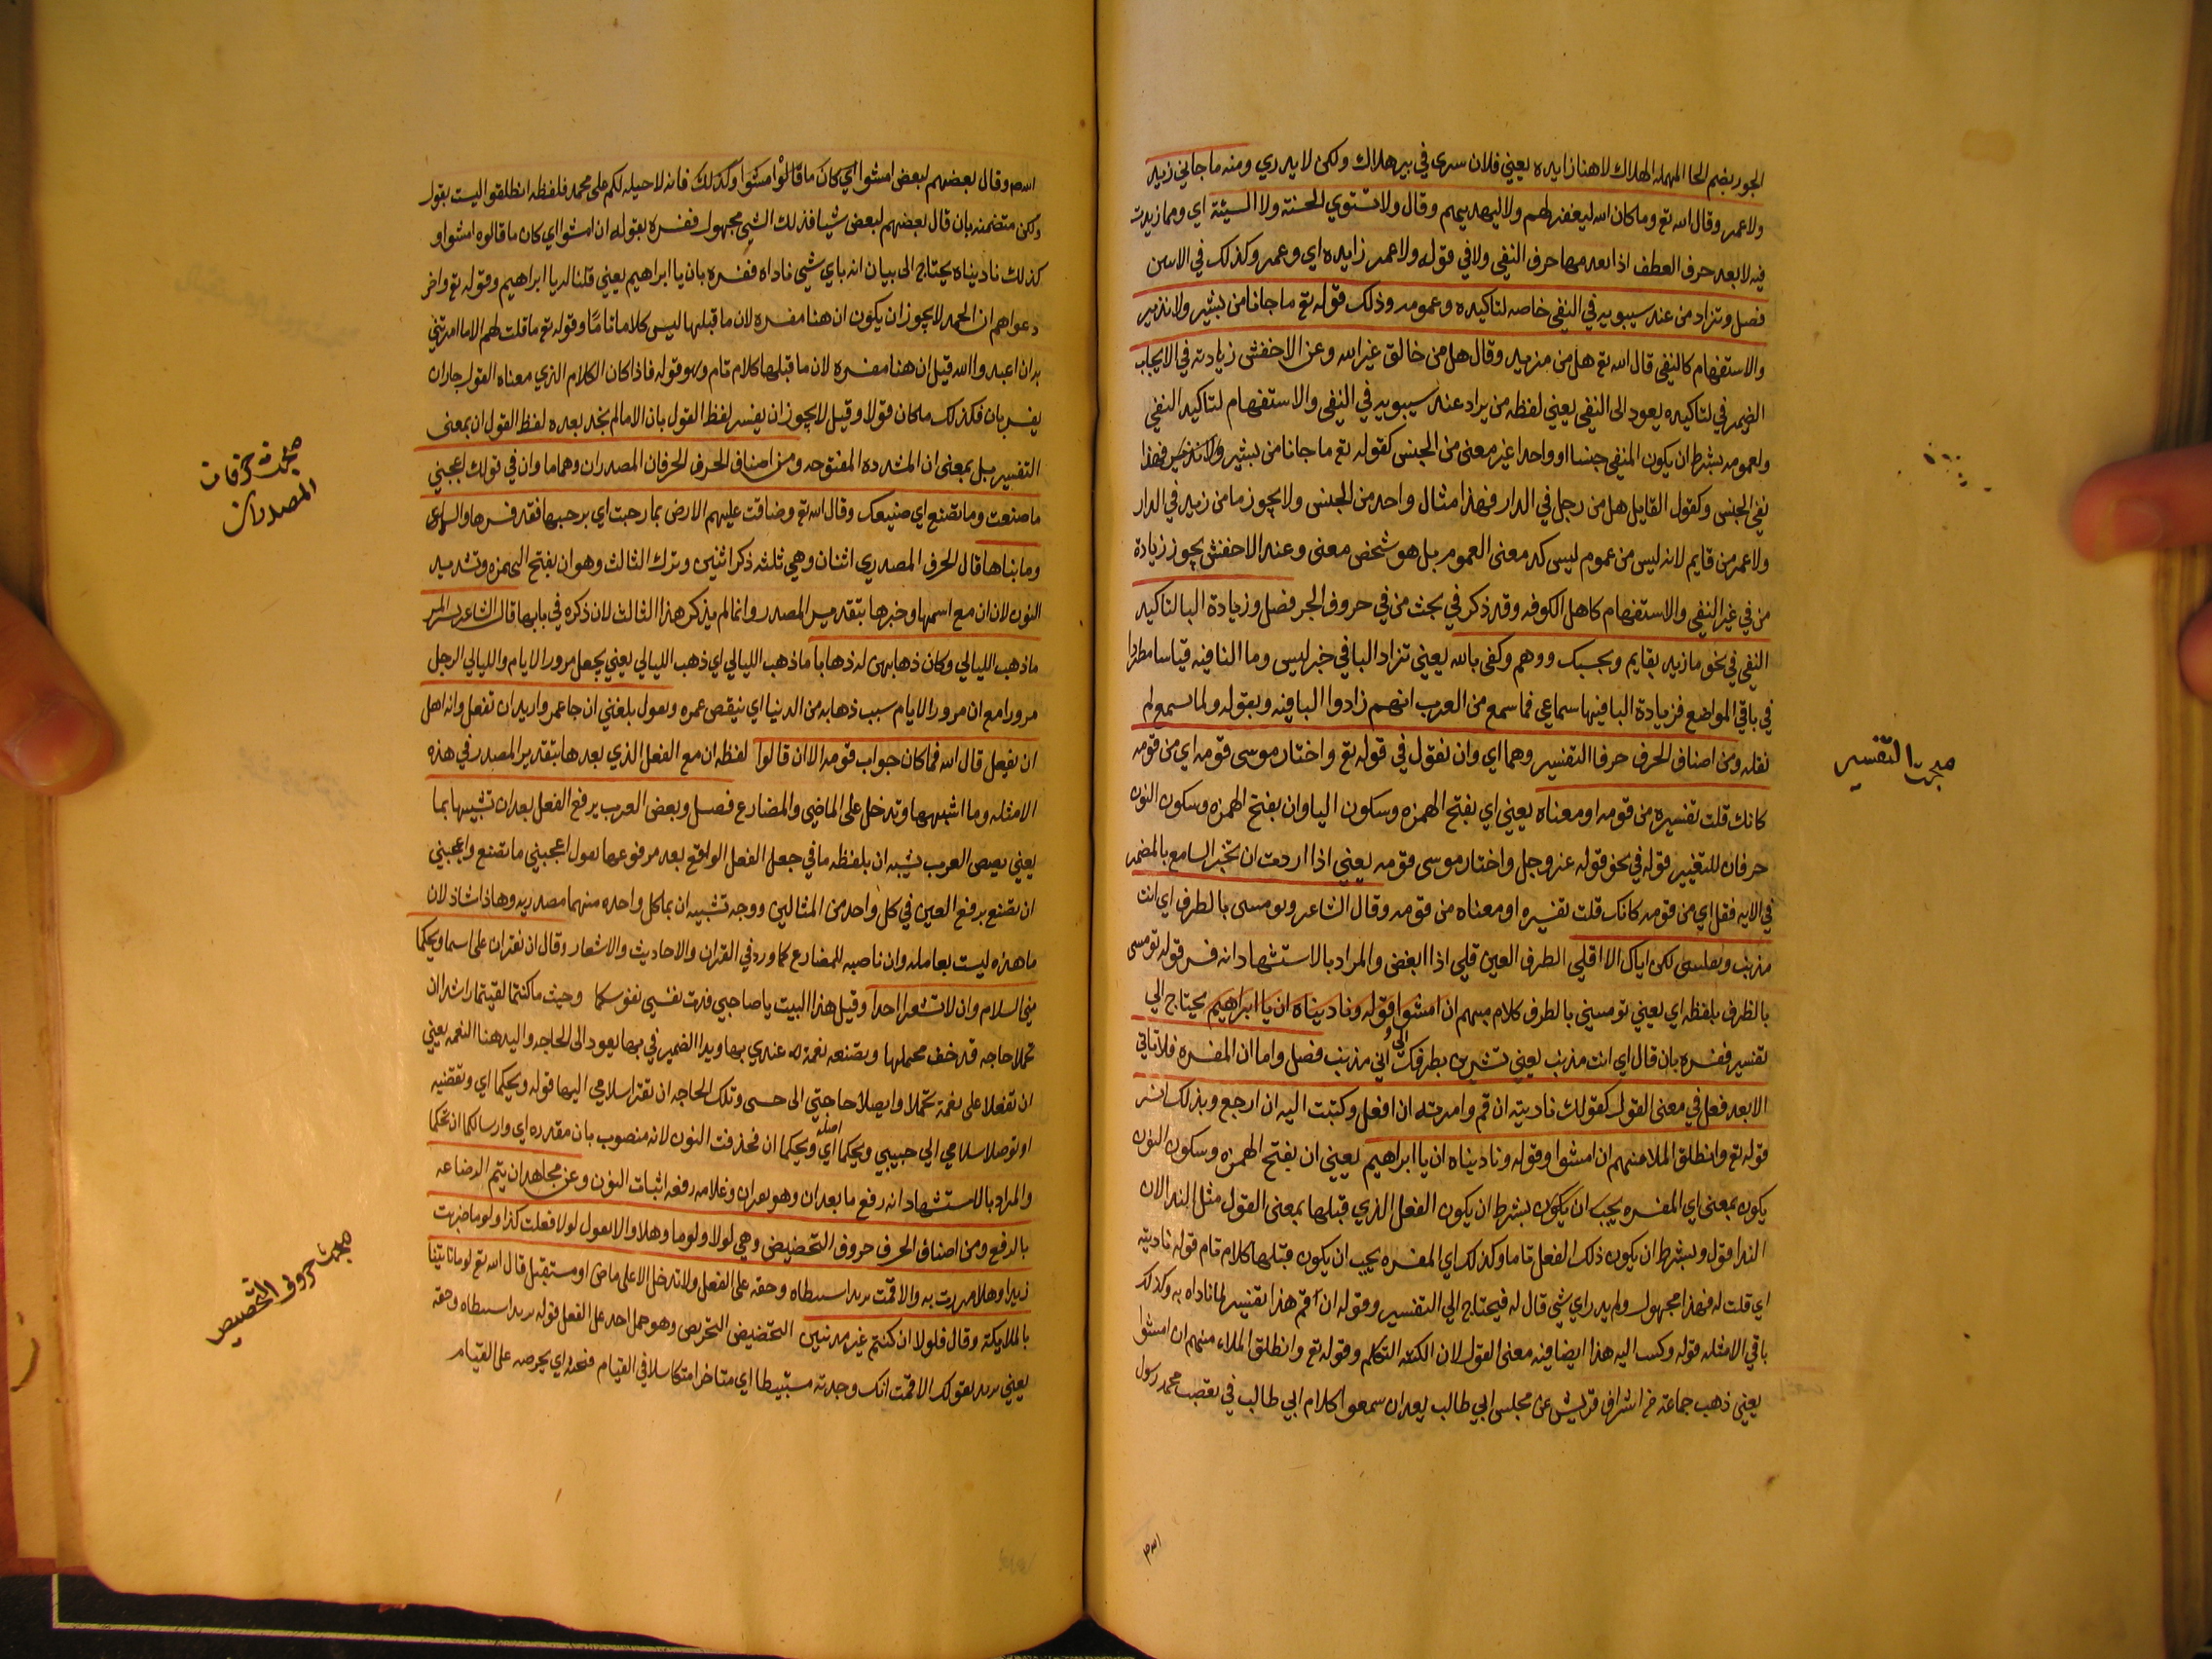 الجور بضم الحا المهمله الهلاك لا هنا زايده يعني فلان سرى في بير هلاك ولكن لا يدري ومنه ما جاني زيد
ولا عمر وقال الله تع وما كان الله ليغفر لهم ولا ليهديهم وقال ولا تستوي الحسنة ولا السيئة اي ومما زيدت
فيه لا بعد حرف العطف اذا بعدها حرف النفي ولا في قوله ولا عمر زايده اي وعمر وكذلك في الاسين
فصل وتزاد من عند سيبويه في النفي خاصه لتاكيده وعمومه وذلك قوله تع ما جانا من بشير ولا نذير
والاستفهام كالنفي قال الله تع هل من مزيد وقال هل من خالق غير الله وعن الاخفش زيادته في الايجاب
الضمير في لتاكيده يعود الى النفي يعني لفظه من يزاد عند سيبويه في النفي والاستفهام لتاكيد النفي
ولعمومه بشرط ان يكون المنفي جنسا او واحدا غير معنى من الجنس كقوله تع ما جانا من بشير ولا نذير فهذا
نفي الجنس وكقول القايل هل من رجل في الدار فهذا مثال واحد من الجنس ولا يجوز ما من زيد في الدار
ولا عمر من قايم لانه ليس من عموم ليس كه معنى العموم بل هو شخص معنى وعند الاخفش يجوز زيادة
من في غير النفي والاستفهام كاهل الكوفه وقد ذكر في بحث من في حروف الجر فصل وزيادة البا لتاكيد
النفي في نحو ما زيد بقايم وبحسبك ودهم وكفى بالله يعني تزاد البا في خبر ليس وما النافيه قياسا مطردا
في باقي المواضع فزيادة البا فيها سماعي فما سمع من العرب انهم زادوا البا فيه وبقوله ولما سمع لم
نقله ومن اصناف الحرف حرفا التفسير وهما اي وان نقول في قوله تع واختار موسى قومه اي من قومه
كانك قلت تفسيره من قومه او معناه يعني اي بفتح الهمزه وسكون اليا وان بفتح الهمزه وسكون النون
حرفان للتغيير قوله في نحو قوله عز وجل واختار موسى قومه يعني اذا اردت ان تخبر السامع بالمضمر
في الايه فقل اي من قومه كانك قلت تفسيره او معناه من قومه وقال الشاعر وترمينني بالطرف اي انت
مذنب وتقلينني لكن اياك لا اقلي الطرف العين قلي اذا ابغض والمراد بالاستشهاد انه فسر قوله ترمينني
بالطرف بلفظه اي يعني ترميني بالطرف كلام مبهم ان امشوا قوله وناديناه ان يا ابراهيم يحتاج الى
تفسير ففسره بان قال اي انت مذنب يعني تشيرين بطرفك الى اني مذنب فصل واما ان المفسره فلا تاتي
الا بعد فعل في معنى القول كقولك ناديته ان قم وامرته ان افعل وكتبت اليه ان ارجع وبذلك فسر
قوله تع وانطلق الملا منهم ان امشوا وقوله وناديناه ان يا ابراهيم يعني ان بفتح الهمزه وسكون النون
يكون بمعنى اي المفسره يجب ان يكون بشرط ان يكون الفعل الذي قبلها بمعنى القول مثل الندا لان
الندا قول وبشرط ان يكون ذلك الفعل تاما وكذلك اي المفسره يجب ان يكون قبلها كلام تام قوله ناديته
اي قلت له فهذا مجهول ولم يدر اي شي قال له فيحتاج الى التفسير وقوله ان قم هذا تفسير لما ناداه به وكذلك
باقي الامثله قوله وكتبت اليه هذا ايضا فيه معنى القول لان الكتبه التكلم وقوله تع وانطلق الملاء منهم ان امشوا
يعني ذهب جماعة من اشراف قريش عن مجلس ابي طالب بعد ان سمعوا كلام ابي طالب في تعصب محمد رسول
الله م
مبحث التفسير
الله م وقال بعضهم لبعض امشوا اي كان ما قالوا امشوا وكذلك فانه لا حيله لكم على محمد فلفظه انطلقوا ليست بقول
ولكن متضمنه بان قال بعضهم لبعض شيا فذلك الشي مجهول ففسره بقوله ان امشوا اي كان ما قالوه امشوا و
كذلك ناديناه يحتاج الى بيان انه باي شي ناداه ففسره بان يا ابراهيم يعني قلنا له يا ابراهيم وقوله تع واخر
دعواهم ان الحمد لا يجوز ان يكون ان هنا مفسره لان ما قبلها ليس كلاما تامًا وقوله تع ما قلت لهم الا ما امرتني
به ان اعبدوا الله قيل ان هنا مفسره لان ما قبلها كلام تام وهو قوله فاذا كان الكلام الذي معناه القول جاز ان
يفسر بان فكذلك ما كان قولا وقيل لا يجوز ان يفسر لفظ القول بان الا ما لم نجد بعده لفظ القول ان بمعنى
التفسير بل بمعنى ان المشدده المفتوحه ومن اصناف الحرف الحرفان المصدران وهما ما وان في قولك اعجبني
ما صنعت وما تصنع اي صنيعك وقال الله تع وضاقت عليهم الارض بما رحبت اي برحبها فقد فسر ها والسما
وما بناها قال الحرف المصدري اثنان وهي ثلثه ذكر اثنين وترك الثالث وهو ان بفتح الهمزه وتشديد
النون لان ان مع اسمها وخبرها بتقدير المصدر وانما لم يذكر هذا الثالث لان ذكره في بابها قال الشاعر يسر المرء
ما ذهب الليالي وكان ذهابهن له ذهابا ما ذهب الليالي اي ذهب الليالي يعني يجعل مرور الايام والليالي الرجل
مرورا مع ان مرور الايام سبب ذهابه من الدنيا اي ينقص عمره وتقول بلغني ان جا عمر واريد ان تفعل وانه اهل
ان يفعل قال الله فما كان جواب قومه الا ان قالوا لفظه ان مع الفعل الذي بعدها بتقدير المصدر في هذه
الامثله وما اشبهها وتدخل على الماضي والمضارع فصل وبعض العرب يرفع الفعل بعد ان تشبيها بما
يعني بعض العرب يشبه ان بلفظه ما في جعل الفعل الواقع بعده مرفوعها تقول اعجبني ما تصنع واعجبني
ان تصنع برفع العين في كل واحد من المثالين ووجه تشبيه ان بما كل واحده منهما مصدريه وهاذا شاذ لان
ما هذه ليست بعامله وان ناصبه للمضارع كما ورد في القران والاحاديث والاشعار وقال ان تقران على اسما ويحكما
مني السلام وان لا تشعرا احدا وقيل هذا البيت يا صاحبي فدت نفسي نفوسكما وحيث ما كنتما لقيتما رشدا ان
تحملا حاجه قد خف محملها وتصنعه نعمة عندي بها ويدا الضمير في بها يعود الى الحاجه واليد هنا النعمه يعني
ان تفعلا على نعمة تحملا وايصلا حاجتي الى حبيبي وتلك الحاجه ان تقرا سلامي اليها قوله ويحكما اي وتقضيه
او توصلا سلامي الى حبيبي ويحكما اي اصله ويحكما ان فحذفت النون لانه منصوب بان مقدره اي وارسالكما ان تحكما
والمراد بالاستشهاد انه رفع ما بعد ان وهو تقران وعلامه رفعه اثبات النون وعن مجاهد ان يتم الرضاعه
بالرفع ومن اصناف الحرف حروف التحضيض وهي لولا ولوما وهلا والا تقول لولا فعلت كذا ولوما ضربت
زيدا وهلا مررت به والا قمت تريد استبطاه وحقه على الفعل ولا تدخل الا على ماض او مستقبل قال الله تع لوما تاتينا
بالملايكة وقال فلولا ان كنتم غير مدينين التحضيض التحريص وهو حمل احد على الفعل قوله تريد استبطاه وحقه
يعني تريد بقولك الا قمت انك وجدته مستبيطا اي متاخرا متكاسلا في القيام فتحثه اي تحرصه على القيام
مبحث حرفان
المصدران
مبحث حروف التحضيض